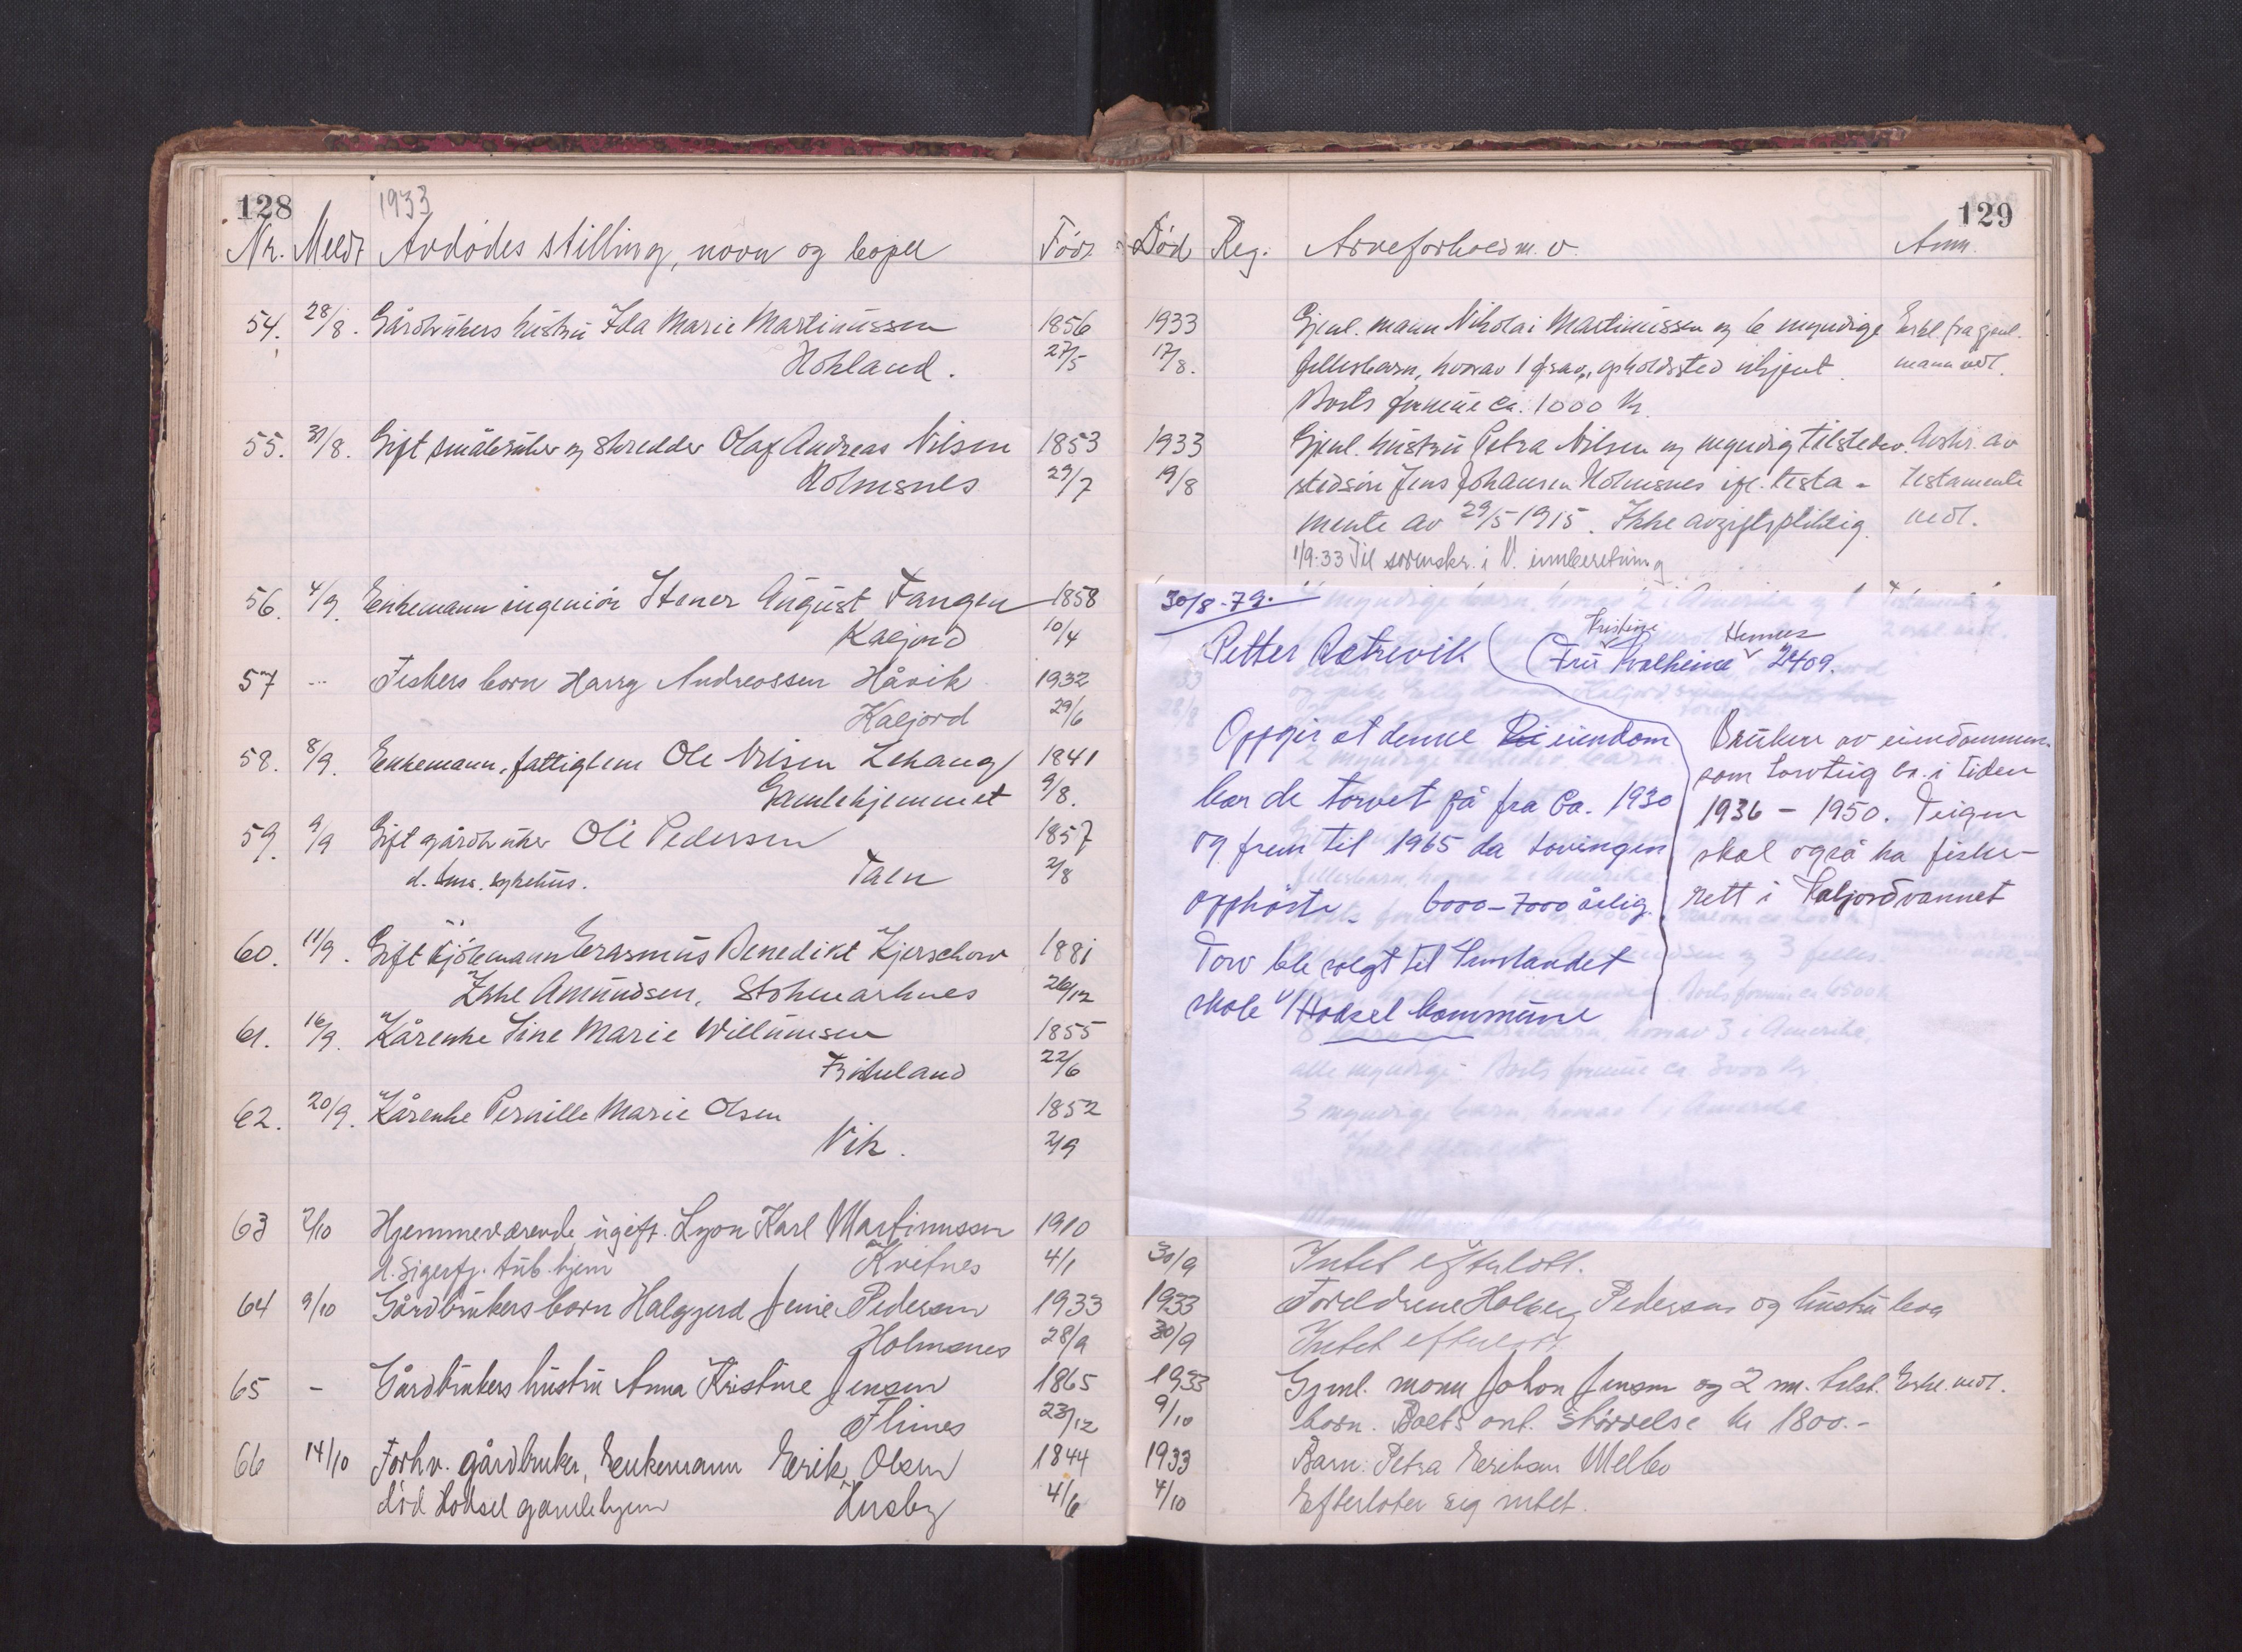 128
1933
Nr. Meldt Avdødes stilling, navn og bopel Föd
54. 28/8. Gårdbrukers hustru Ida Marie Martinussen 1856
Hokland. 27/5
55. 31/8. Gift småbruker og skredder Olaf Andreas Nilsen 1853
Holmsnes 29/7
56. 4/9. Enkemann ingeniör Stener August Fangen 1858
Kaljord 10/4
57 Fiskers barn Harry Andreassen Håvik 1932
Kaljord 29/6
58. 8/9. Enkemann, fattiglem Ole Nilsen Lekang 1841
Gamlehjemmet 9/8.
59. 9/9 Gift gårdbruker Ole Pedersen 1857
d. sykehus. Taen 2/8
60. 11/9. Gift sjömann Erasmus Benedikt Kjerschow 1881
Amundsen, Stokmarknes 26/12
61. 16/9. Kårenke Sine Marie Willumsen 1855
Friskeland 22/6
62. 20/9. Kårenke Pernille Marie Olsen 1852
Vik. 2/9
63 2/10 Hjemmeværende ugift. Lyon Karl Martinussen 1910
d. Sigerfj. tub. hjem Kvitnes 4/1
64 9/10 Gårdbrukers barn Halgjerd Jenie Pedersen 1933
Holmsnes 28/9
65 - Gårdbrukers hustru Anna Kristine Jensen 1865
Flines 23/12
66 14/10 Forhv. gårdbruker, Enkemann Erik Olsen 1844
död Hadsel gamlehjem Husby 4/6
129
Död Reg. Arveforhold m. v. Anm.
1933 Gjenl. mann Nikolai Martinussen og 6 myndige Erkl. fra gjenl.
17/8. fellesbarn, hvorav 1 frav., opholdssted ukjent. mann vedl.
Boets formue ca. 1000 kr.
1933 Gjenl. hustru Petra Nilsen og myndig tilstedev. Avskr. av
19/8 stedsön Jens Johansen Holmsnes ifl. testa- testamente
mente av 29/5 1915. Ikke avgiftspliktig. vedl.
1/9.33 Til sorenskr. i V. innberetning
30/8-79.
Petter Ratrevik (Fru Kristine Kvalheim Hennes 2409.
Oppgir at denne eiendom
har de torvet på fra ca. 1930
og frem til 1965 da tovingen
opphörte. 6000-7000 årlig.
Torv ble solgt til Innlandet
skole v/Hadsel kommune
Brukere av eiendommen
som torvteig ca. i tiden
1936 - 1950. Teigen
skal også ha fiske-
rett i Kaljordvannet
30/9 Intet efterlatt.
1933 Foreldrene Holberg Pedersen og hustru leva
30/9 Intet efterlatt
1933 Gjenl. mann Johan Jensen og 2 m. tilst. Erkl. vedl.
9/10 barn. Boets ant. störrelse kr 1800.-
1933 Barn: Petra Eriksen Melbo
4/10 Efterlater sig intet.